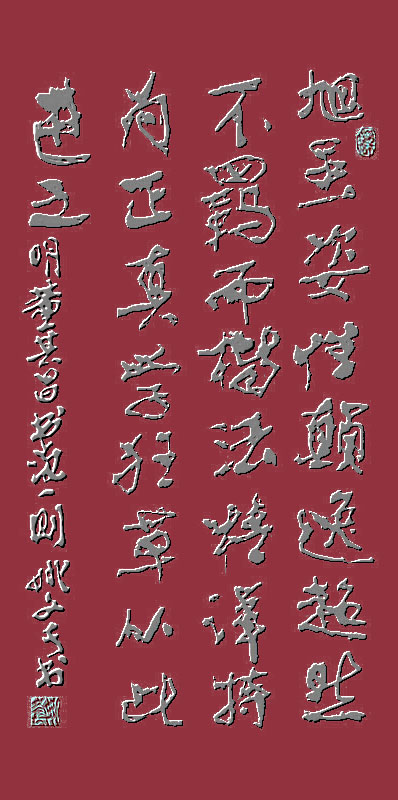 旭虽姿性顛逸超然
不羈而楷法精詳特
为正真学狂草从此
進之
明董其昌书一则姚文书